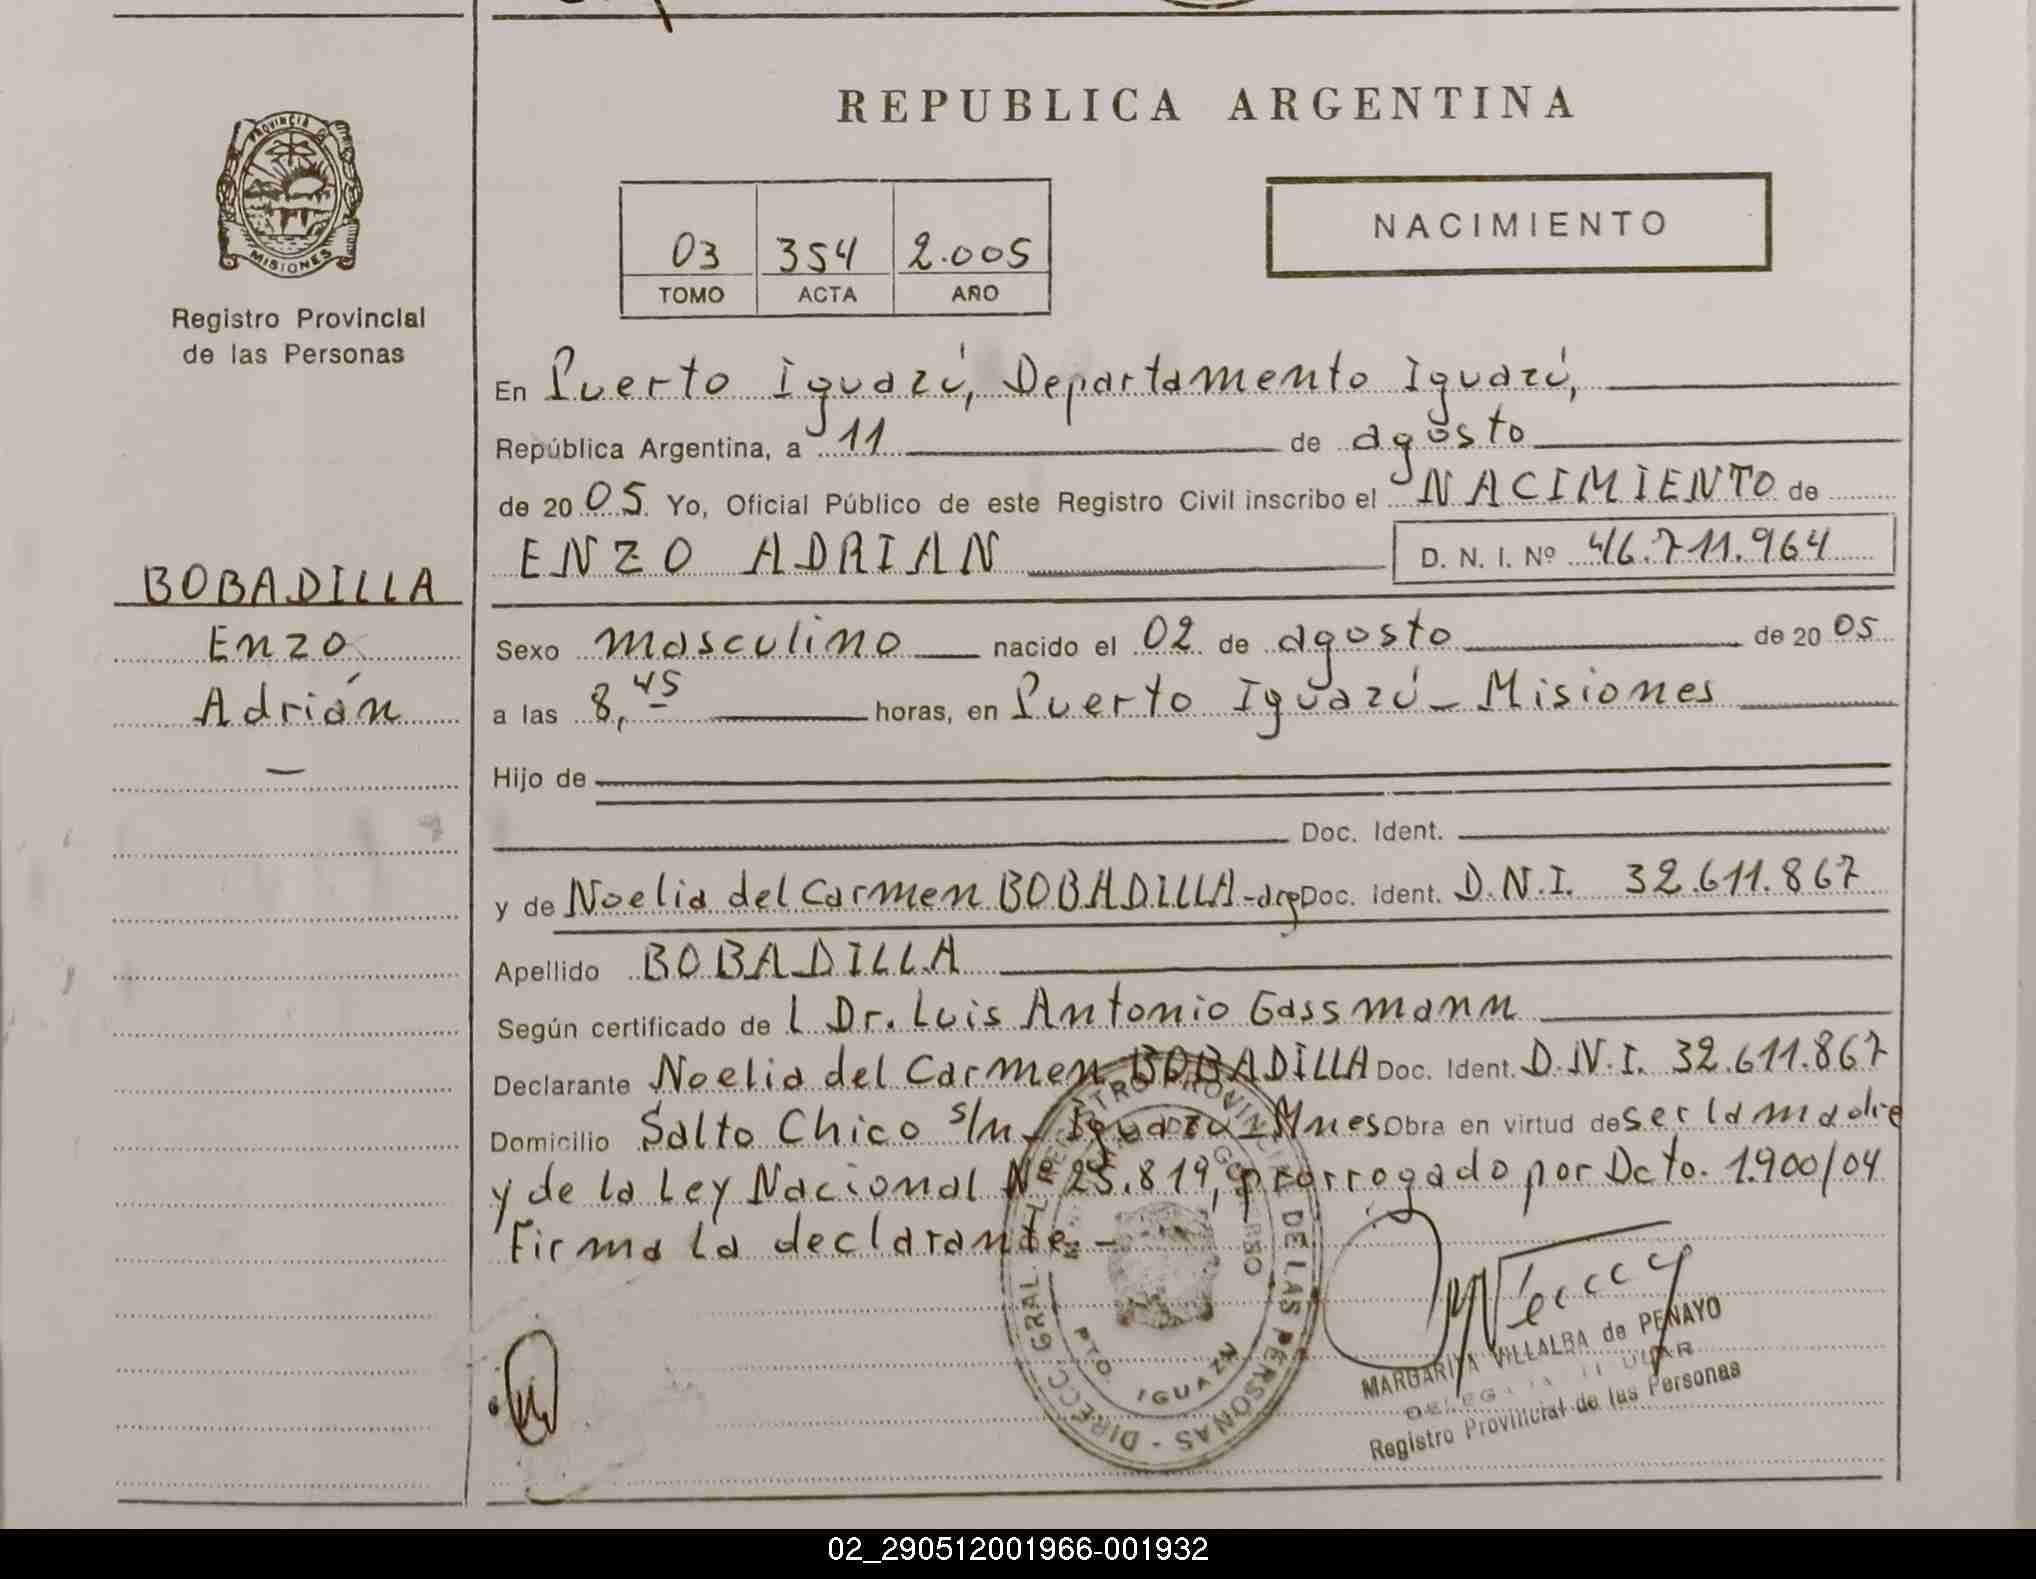 PROVINCIA DE
MISIONES
Registro Provincial
de las Personas
BOBADILLA
Enzo
Adrián
—
REPUBLICA ARGENTINA
03 354 2.005
TOMO ACTA AÑO
NACIMIENTO
En Puerto Iguazú, Departamento Iguazú,
República Argentina, a 11 de agosto
de 2005. Yo, Oficial Público de este Registro Civil inscribo el NACIMIENTO de
ENZO ADRIAN D. N. I. Nº 46.711.964
Sexo masculino nacido el 02 de agosto de 2005
a las 8,45 horas, en Puerto Iguazú - Misiones
Hijo de
Doc. Ident.
y de Noelia del Carmen BOBADILLA - arg Doc. Ident. D.N.I. 32.611.867
Apellido BOBADILLA
Según certificado de l Dr. Luis Antonio Gassmann
Declarante Noelia del Carmen BOBADILLA Doc. Ident. D.N.I. 32.611.867
Domicilio Salto Chico s/n - Iguazú - Mnes Obra en virtud de ser la madre
y de la Ley Nacional Nº 25.819, prorrogado por Dcto. 1.900/04
Firma la declarante. -
DIRECC. GRAL. REGISTRO PROVINCIAL DE LAS PERSONAS -
PTO. IGUAZU
MARGARITA VILLALBA de PENAYO
Registro Provincial de las Personas
02_290512001966-001932